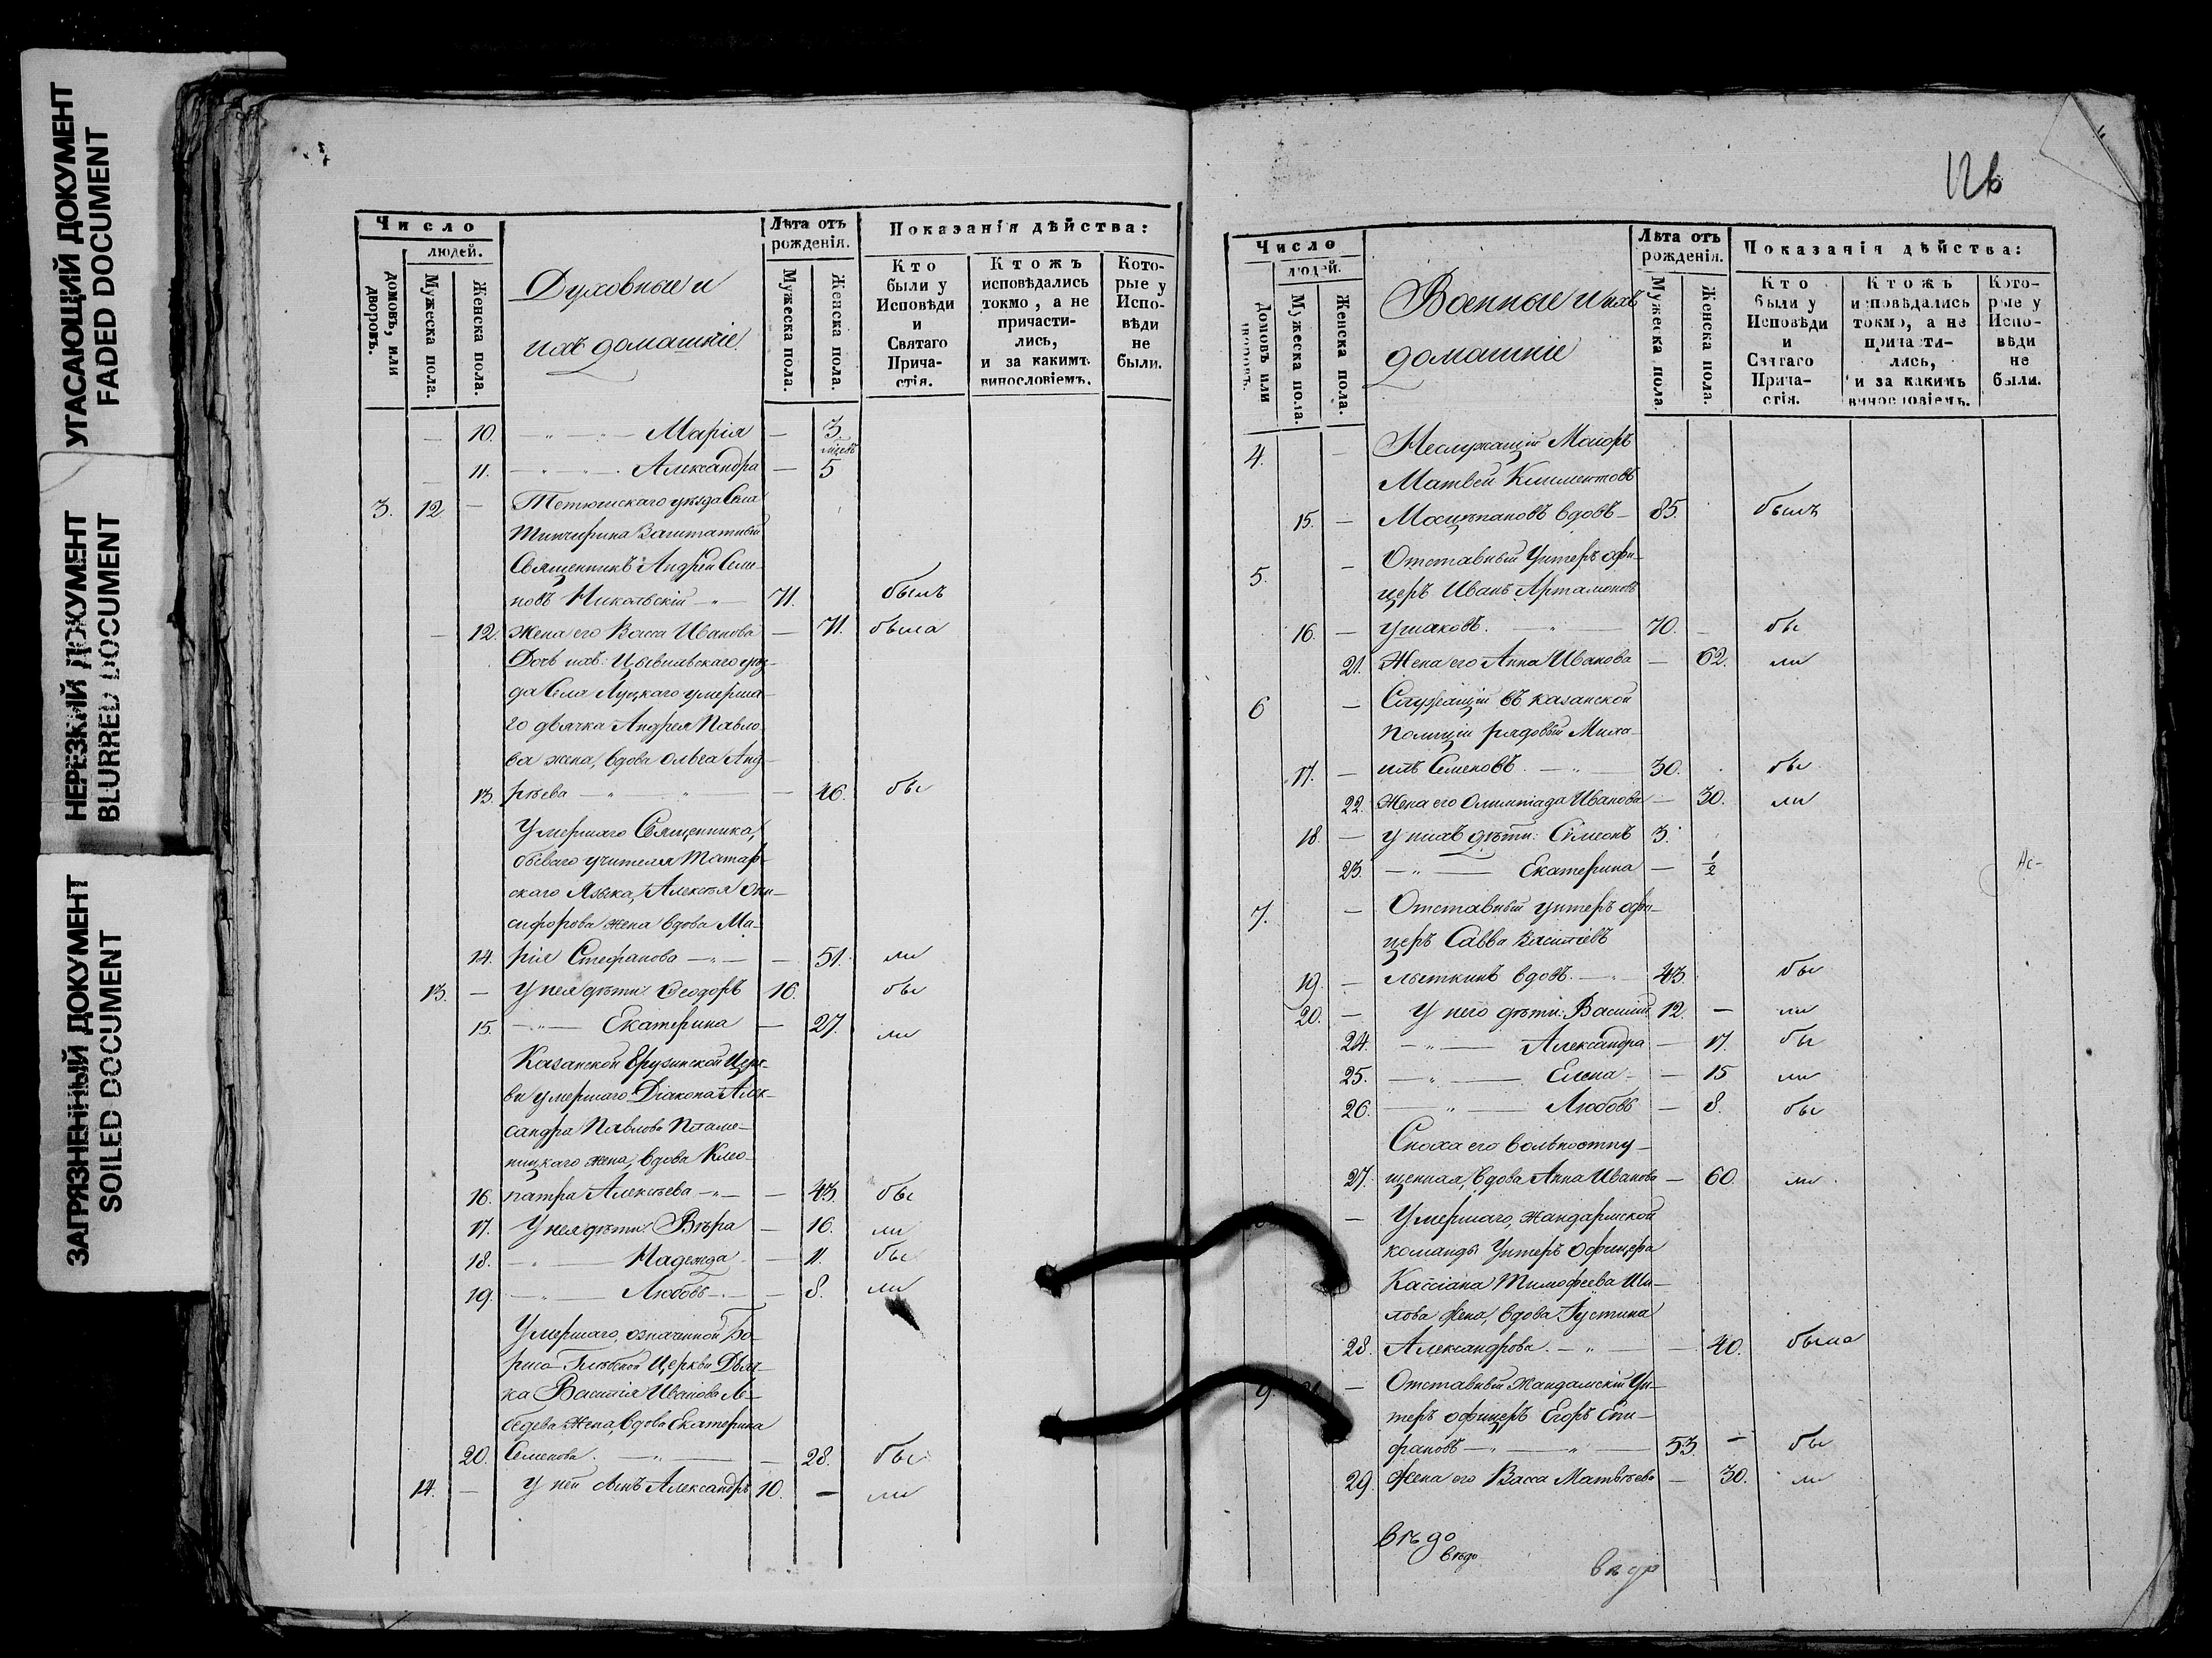 УГАСАЮЩИЙ ДОКУМЕНТ
FADED DOCUMENT
НЕРЕЗКИЙ ДОКУМЕНТ
BLURRED DOCUMENT
ЗАГРЯЗНЕННЫЙ ДОКУМЕНТ
SOILED DOCUMENT
Число
людей.
домовъ, или дворовъ.
Мужеска пола.
Женска пола.
Духовные и
ихъ домашніе
Лѣта отъ рожденія.
Мужеска пола.
Женска пола.
Показанія дѣйства:
Кто были у Исповѣди и Святаго Причастія.
Ктожъ исповѣдались токмо, а не причастились, и за какимъ винословіемъ.
Которые у Исповѣди не были.
10. — " — " — Марія — 3
11. — " — " — Александра — 5
3. 12. — Тетюшскаго уѣзда Села
Заштатный
Священникъ Андрей Семе-
новъ Никольскій — " — 71. былъ
— 12. Жена его Васса Иванова — 71. была
Дочь ихъ: Цывильскаго уѣз-
да Села Луцкаго умерша-
го дьячка Андрея Павло-
ва жена, вдова Ольга Анд-
13. рѣева — " — " — 46. бы
Умершаго Священника,
бывшаго учителя Татар-
скаго Языка, Алексѣя Они-
сифорова жена вдова Ма-
14. рія Стефанова — " — — 51. ли
13. — У нея дѣти: Ѳеодоръ 16. бы
15. — " — Екатерина — 27. ли
Казанской Грузинской Церк-
ви умершаго Діакона Алек-
сандра Павлова
жена, вдова Клео-
16. патра Алексѣева — " — — 43. бы
17. У нея дѣти: Вѣра — 16. ли
18. — " — Надежда — 11. бы
19. — " — Любовь — — 8. ли
Умершаго, означенной Бо-
рисо-Глѣбской Церкви Дьяч-
ка Василія Иванова Ле-
бедева Жена, вдова Екатерина
20. Семенова. — " — — 28. бы
14. — У ней сынъ Александръ 10. — ли
126
Число
людей.
Домовъ или дворовъ.
Мужеска пола.
Женска пола.
Военные и ихъ
домашніе
Лѣта отъ рожденія.
Мужеска пола.
Женска пола.
Показанія дѣйства:
Кто были у Исповѣди и Святаго Причастія.
Ктожъ исповѣдались токмо, а не причастились, и за какимъ винословіемъ.
Которые у Исповѣди не были.
4. — Неслужащій Маіоръ
Матвей Климентовъ
15. — вдовъ — 85. былъ
5. — Отставный Унтеръ офи-
церъ Иванъ Артамоновъ
16. — Ушаковъ. — " — 70. — бы
21. Жена его Анна Иванова — 62. ли
6 — Служащій въ Казанской
Полиціи рядовый Миха-
17. — илъ Семеновъ. — " — 30. бы
22. Жена его Олимпіада Иванова — 30. ли
18. — у нихъ дѣти: Симеонъ 3.
23. — " — Екатерина — 1/2
7. — Отставный унтеръ офи-
церъ Савва Васильевъ
19. — Лыткинъ вдовъ. — " 43. бы
20. — У него дѣти: Василій 12. — ли
24. — " — Александра — 17. бы
25. — " — Елена — — 15 ли
26. — " — Любовь — 8. бы
Сноха его вольноотпу-
27. щенная, вдова Анна Иванова — 60. ли
— Умершаго, Жандармской
команды Унтеръ Офицера
Кассіана Тимофеева Ши-
лова Жена, вдова Іустина
28. Александрова. — " — — 40. была
9. — Отставный Жандамскій Ун-
теръ офицеръ Егоръ Епи-
фановъ — " — " — 53. — бы
29. Жена его Васса Матвѣева — 30. ли
вѣдо
вѣдо